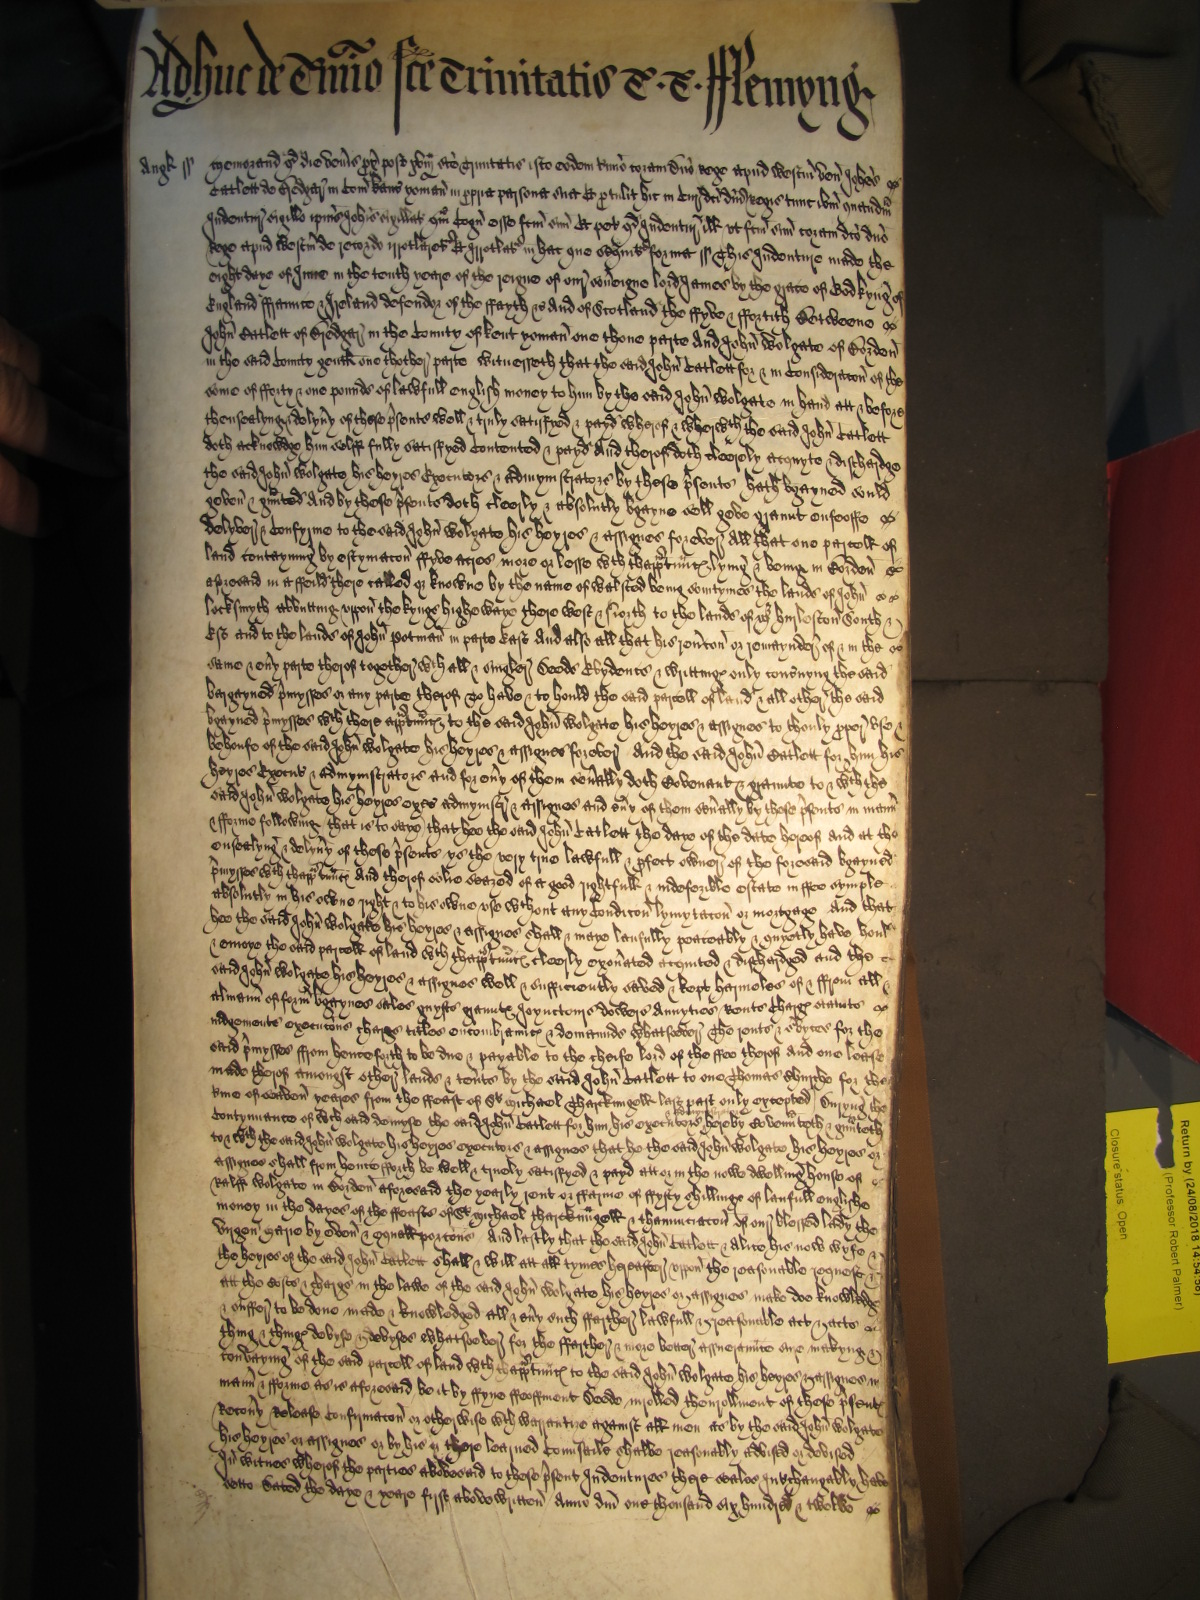 Adhuc de Tmino sce Trinitatis T. T. Fflemyng
Angl ss Memorand qd die ven'is px post xbm sce Trinitatis isto eodem Tmino coram dno Rege apud Westm ven Johes
Catlett de in Com yoman in ppria persona sua Et ptulit hic in Cur dci dni Regis tunc ibm quandm
Indentur sigillo ipius Johis sigillat qm Cogn esse fcm suu Et pet qd Indentur ill vt fcm suu coram dco dno
Rege apud Westm de recordo irrotlaret Et Irrotlat in hac que sequit forma ss This Indenture made the
eight daye of June in the tenth yeare of the reigne of our sov'eigne lord James by the grace of God kyng of
England Ffraunce & Ireland defender of the ffayth &c And of Scotland the ffyve & ffortith Betweene
John Catlett of in the County of Kent yoman one thone parte And John Wolgate of Borden
in the said County gentl one thother parte witnesseth that the said John Catlett for & in Consideracon of the
some of fforty & one pounds of lawfull english money to him by the said John Wolgate in hand att & before
thensealyng & delyv'y of these p'sents well & truly satisfyed & payd wherof & wherwth the said John Catlett
doth acknowledge him selff fully satisfyed Contented & payd And therof doth cleerely acquyte & dischardge
the said John Wolgate his heyres Executors & admynistrators by these p'sents hath bgayned sould
geven & g'nted And by these p'sents doth cleerly & absolutly bgayne sell geve graunt enfeoffe
delyver & Confyrme to the said John Wolgate his heyres & assignes for ever All that one parcell of
land contayning by estymacon ffyve acres more or lesse wth thapp'tin'ncs lying & being in Borden
aforesaid in a ffeild there called or knowne by the name of being somtymes the lands of John
locksmyth abbutting uppon the kyngs highe waye there west & north to the lands of South &
Est and to the lands of John Potman in parte East And also all that his rev'con or remaynder of & in the
same & ev'y parte therof together wth all & singler Deeds Evydents & writtings only conc'nyng the said
bargayned p'mysses or any parte therof To have & to hould the said parcell of land & all other the said
bgayned p'mysses wth there app'tin'ncs to the said John Wolgate his heyres & assignes to thonly p'per vse &
behoufe of the said John Wolgate his heyres & assignes for ever And the said John Catlett for him his
heyres Execut & admynistrators and for ev'y of them sev'ally doth Covenant & graunte to & wth the
said John Wolgate his heyres exec admynistr & assignes and ev'y of them sev'ally by these p'sents in mann'
& fforme following that is to saye that hee the said John Catlett the daye of the date hereof And at the
ensealyng & delyv'y of these p'sents ys the very true lawfull & p'fect owner of the foresaid bgayned
p'mysses wth thapp'tin'ncs And therof solie seazed of a good rightfull & indefezible estate in ffee symple
absolutly in his owne right & to his owne vse without any Condicon lymytacon or mortgage And that
hee the said John Wolgate his heyres & assignes shall & maye laufully peaceably & quyetly have hould
& enioye the said parcell of land wth thapp'tin'ncs cleerly exon'ated acquited & dischardged and the
said John Wolgate his heyres & assignes well & sufficiently saved & kept harmeles of & ffrom all &
almann' of form' bgaynes sales guyfts graunts Joynctures dowers Annyties Rents Chargs statuts
iudgements execucons chargs titles encombrancs & demaunds whatsoever The rents & s'vyces for the
said p'mysses ffrom henceforth to be due & payable to the cheife lord of the ffee therof And one lease
made therof amongst other lands & ten'ts by the said John Catlett to one Thomas for the
time of seaven yeares from the ffeast of St Michael Tharchangell last past only excepted Duryng the
Contynuance of wch said demyse the said John Catlett for him his executors & hereby Coven'nteth & g'nteth
to & wth the said John Wolgate his heyres executors & assignes that he the said John Wolgate his heyres or
assignes shall from henceforth be well & truely satisfyed & payd att or in the nowe dwelling house of
Ralff Wolgate in Borden aforesaid the yearly rent or ffarme of ffyfty shillings of laufull englishe
money in the dayes of the ffeasts of St Michael tharchangell & thannuciacon of our blessed lady the
Virgen Marie by even & equall porcons And lastly that the said John Catlett & Alice his now wyfe &
the heyres of the said John Catlett shall & will att all tymes hereafter vppon the reasonable request &
att the costs & chargs in the lawe of the said John Wolgate his heyres or assignes make doe knowledge
& suffer to be done made & knowledged all & ev'y such ffarther lawfull & reasonable act & acts
thing & things devyse & devyses whatsoever for the ffarther & more better assuraunce sure makyng &
convaying of the said parcell of land wth thapp'tin'ncs to the said John Wolgate his heyres & assignes in
mann' & fforme as is aforesaid be it by ffyne ffeoffment Deede inrolled thenrollment of these p'sents
Recov'y Release Confirmacon or otherwise wth warrantize against all men as by the said John Wolgate
his heyres or assignes or by his or there learned Counsaile shalbe reasonably advised or devised
In witnes wherof the parties abovesaid to these p'sent Indentures there seales Interchangably have
sette Dated the daye & yeare first above written Anno Dni one thousand six hundred & twelve
Return by (24/08/2018 14:54:58)
(Professor Robert Palmer)
Closure status: Open